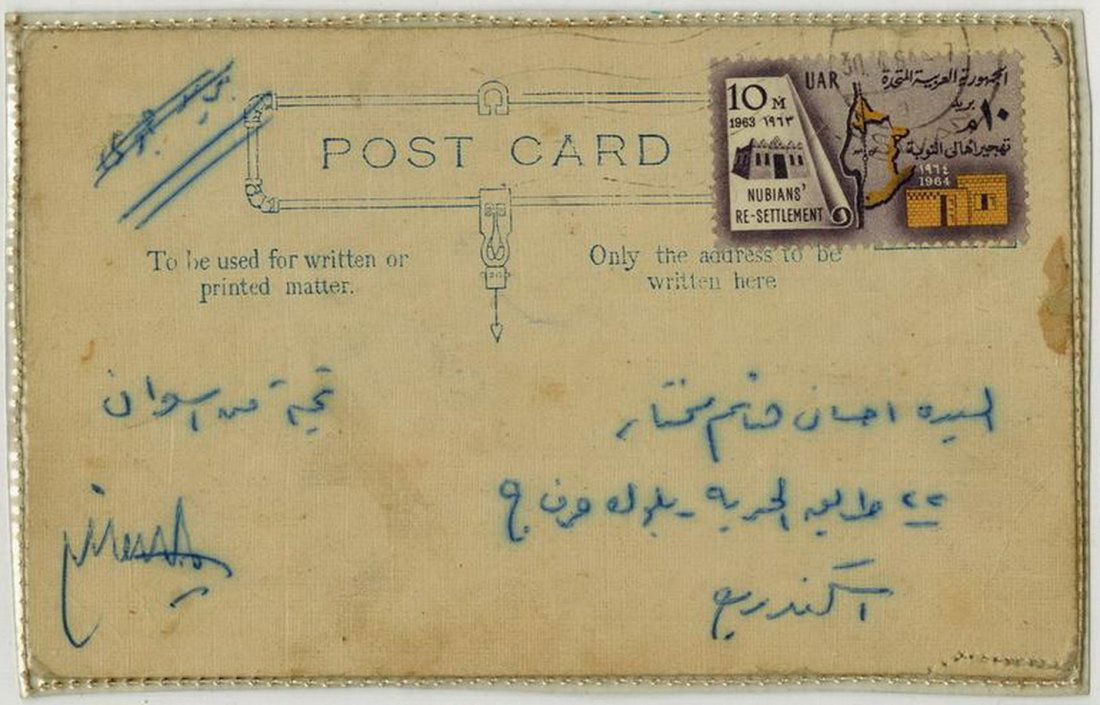 POST CARD
UAR
الجمهورية العربية المتحدة
10 M
بريد
١٠ م
1963 ١٩٦٣
تهجير أهالى النوبة
١٩٦٤
1964
NUBIANS'
RE-SETTLEMENT
To be used for written or
printed matter.
Only the address to be
written here
تحية من اسوان
السيدة احسان هانم مختار
٢٢ طريق الحرية - بلوك حرف ج
اسكندرية